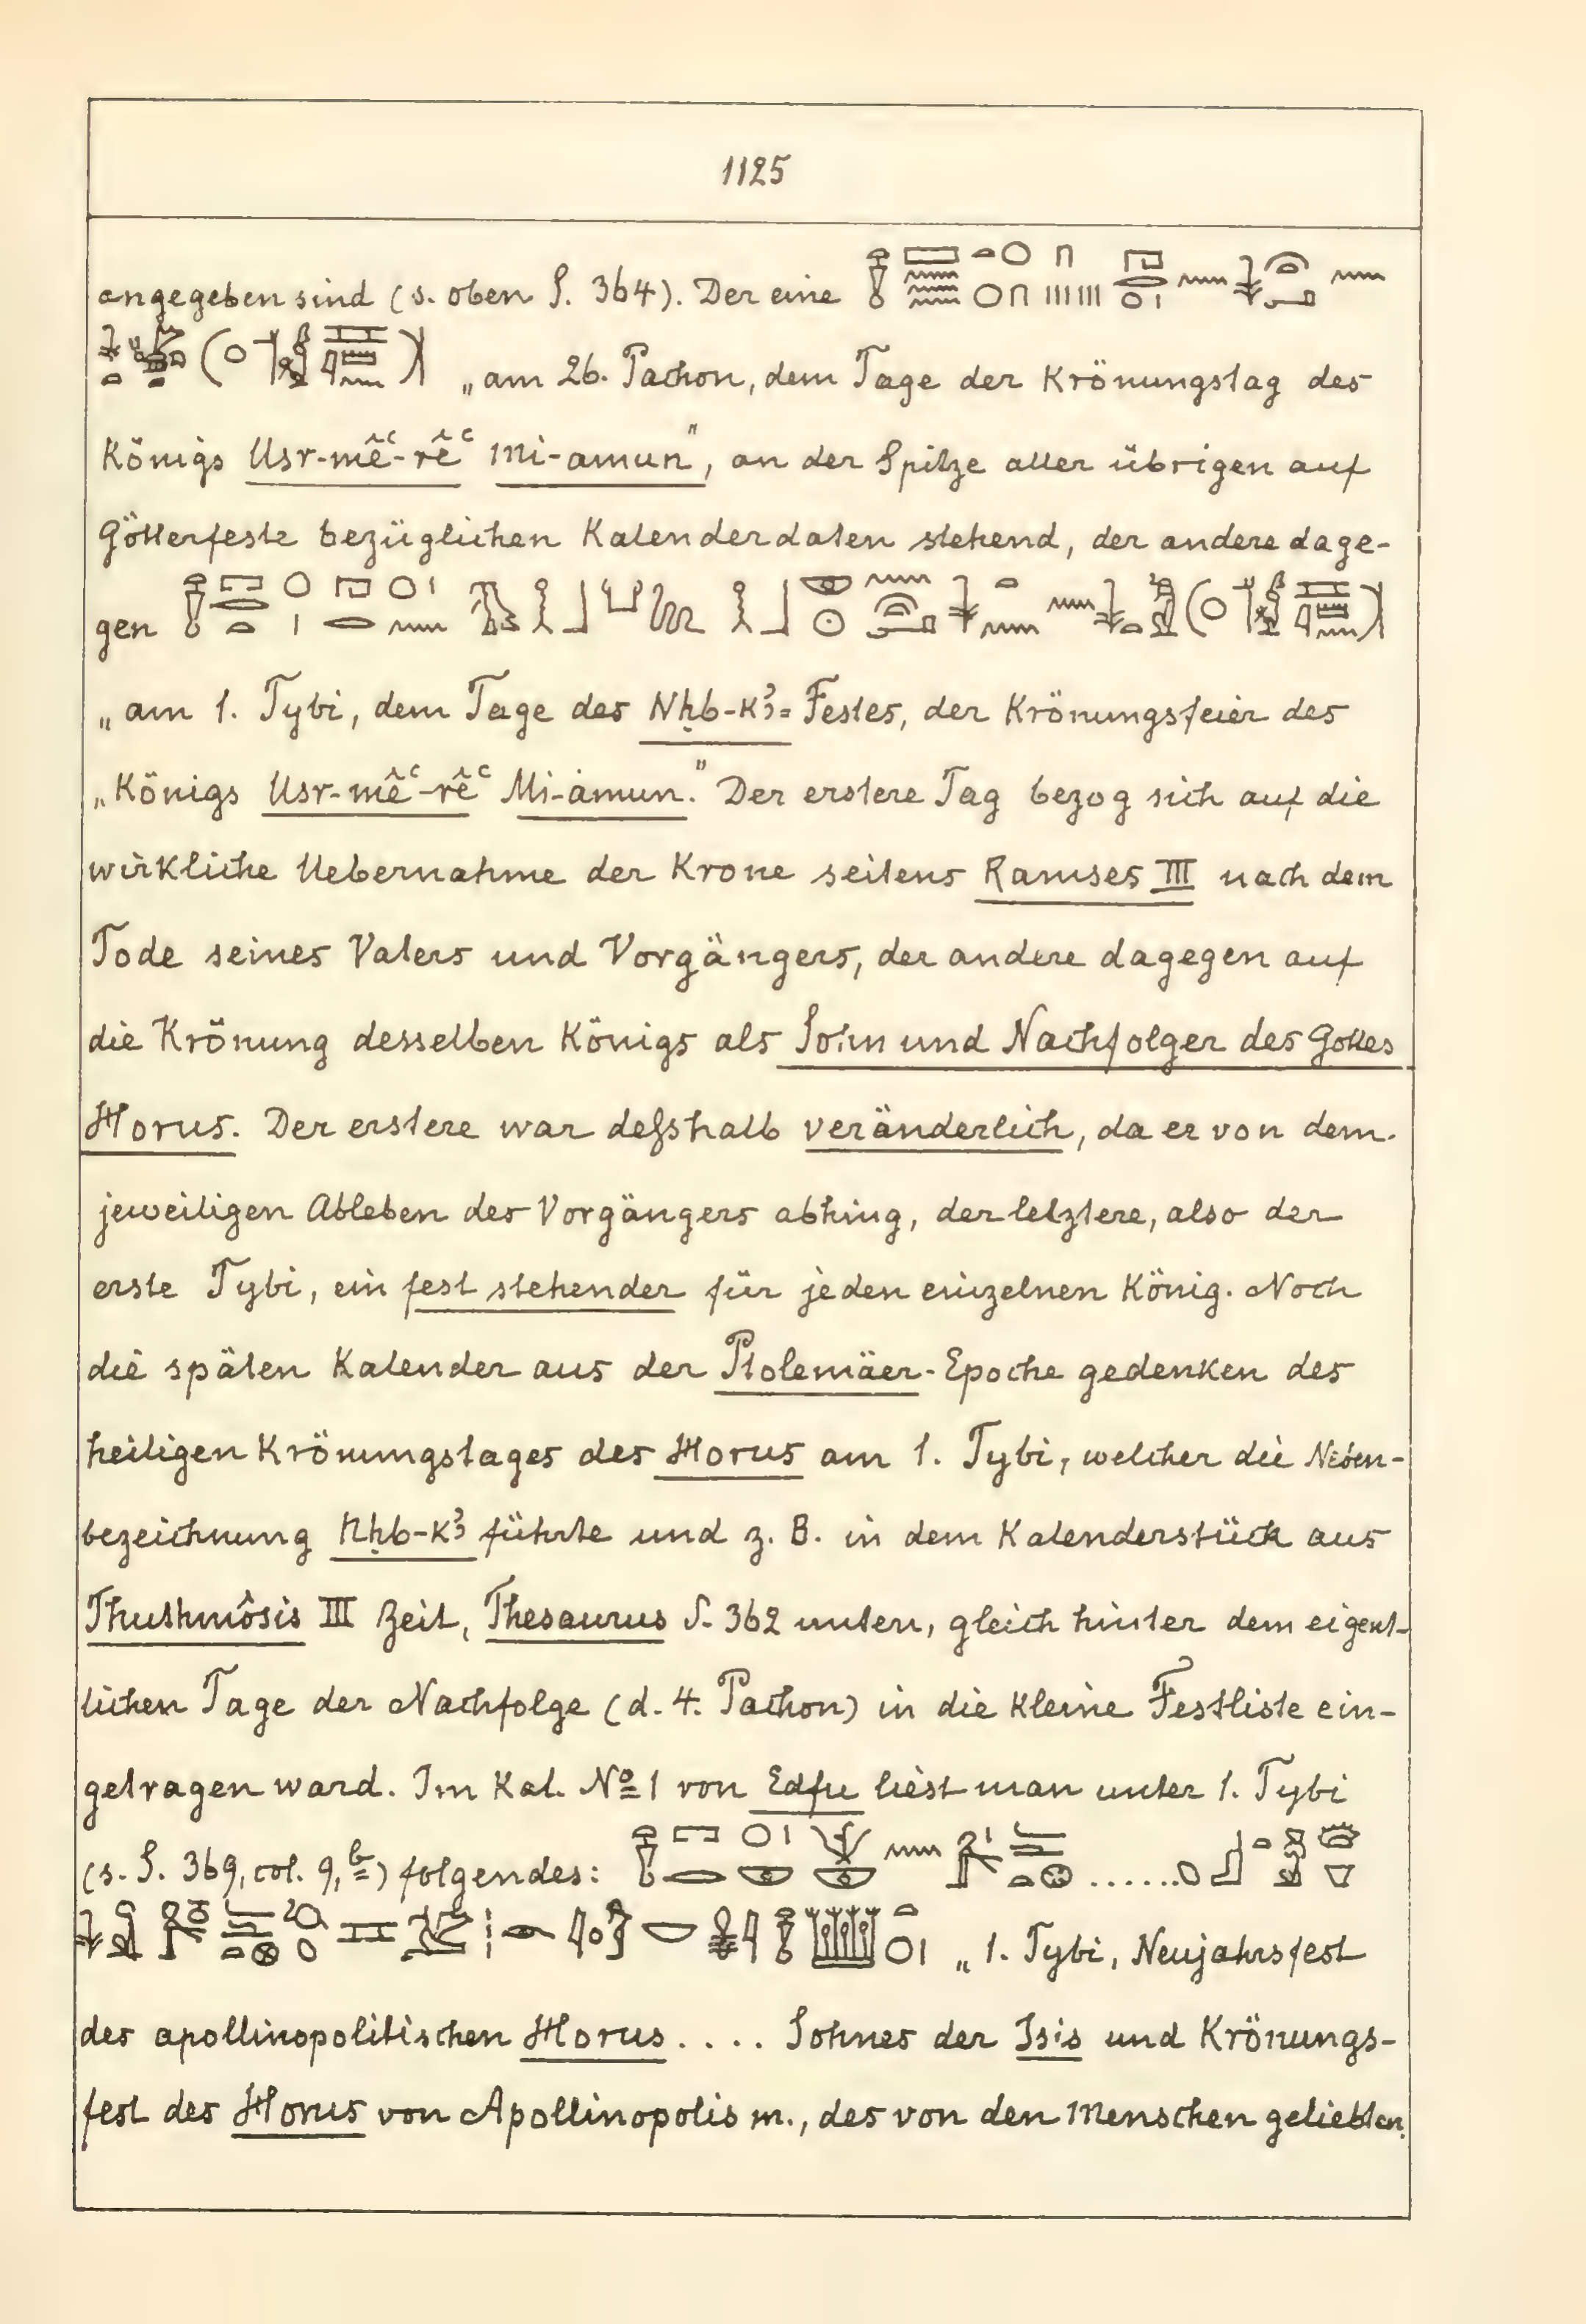 1125
angegeben sind (s. oben S. 364). Der eine
„am 26. Pachon, dem Tage der Krönungstag des
Königs Usr-mê̆ᶜ-rê̆ᶜ Mi-amun", an der Spitze aller übrigen auf
Götterfeste bezüglichen Kalenderdaten stehend, der andere dage-
gen
„am 1. Tybi, dem Tage des Nḥb-k³= Festes, der Krönungsfeier des
„Königs Usr-mê̆ᶜ-rê̆ᶜ Mi-amun." Der erstere Tag bezog sich auf die
wirkliche Uebernahme der Krone seitens Ramses III nach dem
Tode seines Vaters und Vorgängers, der andere dagegen auf
die Krönung desselben Königs als Sohn und Nachfolger des Gottes
Horus. Der erstere war deßhalb veränderlich, da er von dem
jeweiligen Ableben des Vorgängers abhing, der letztere, also der
erste Tybi, ein fest stehender für jeden einzelnen König. Noch
die späten Kalender aus der Ptolemäer-Epoche gedenken des
heiligen Krönungstages des Horus am 1. Tybi, welcher die Neben-
bezeichnung Nḥb-k³ führte und z. B. in dem Kalenderstück aus
Thuthmôsis III Zeit, Thesaurus S. 362 unten, gleich hinter dem eigent-
lichen Tage der Nachfolge (d. 4. Pachon) in die kleine Festliste ein-
getragen ward. Im Kal. Nº 1 von Edfu liest man unter 1. Tybi
(s. S. 369, col. 9, b) folgendes: .......
„1. Tybi, Neujahrsfest
des apollinopolitischen Horus .... Sohnes der Isis und Krönungs-
fest des Horus von Apollinopolis m., des von den Menschen geliebten.